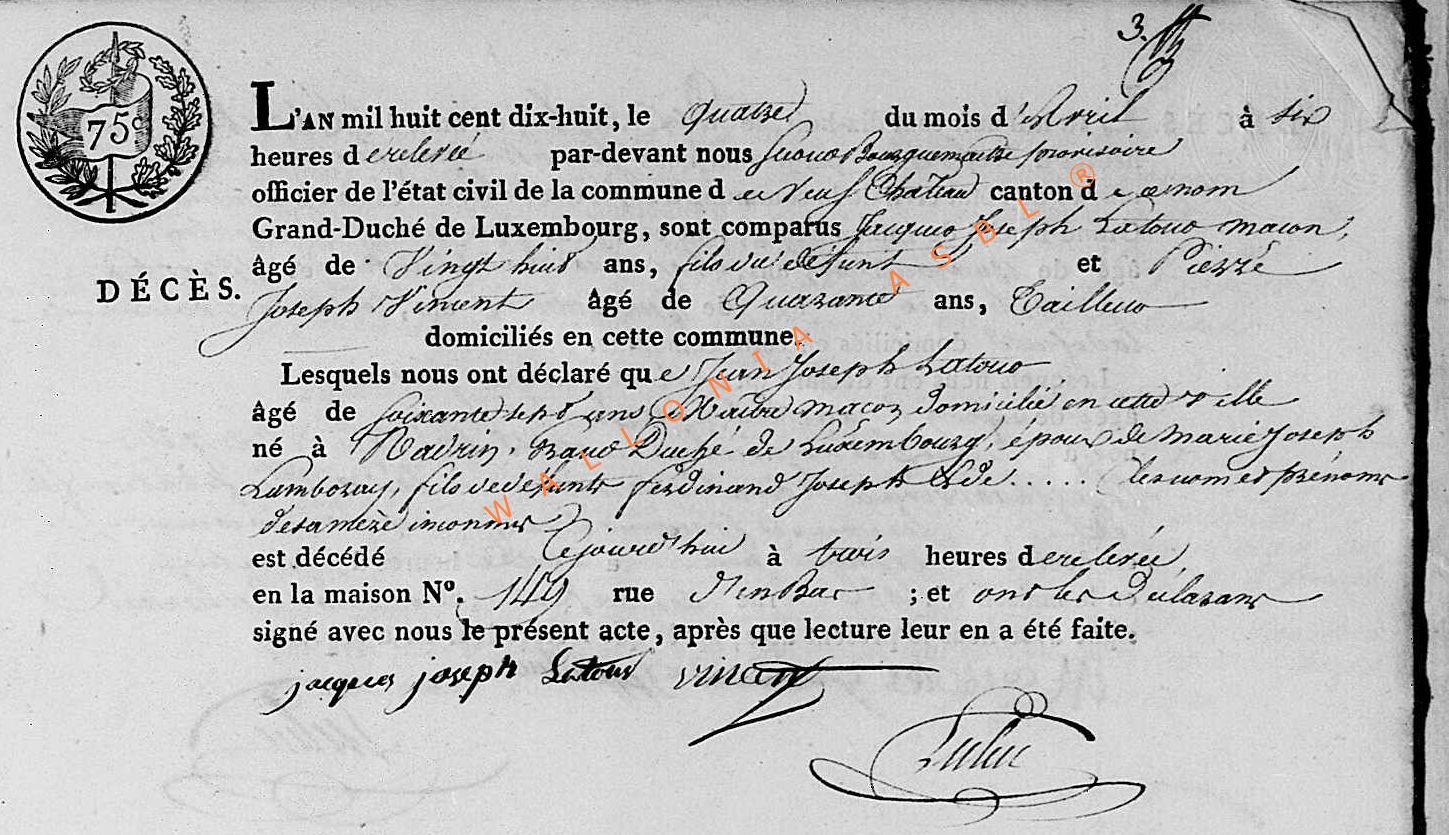 3.
75c
L'AN mil huit cent dix-huit, le quatre du mois d'Avril à six
heures de relevée par-devant nous Bourguemaitre provisoire
officier de l'état civil de la commune de Neuf Chateau canton de ce nom
Grand-Duché de Luxembourg, sont comparus Jacques Joseph Latour macon,
âgé de Vingt huit ans, fils du défunt et Pierre
DÉCÈS.
Joseph Vincent âgé de Quarante ans, Tailleur
domiciliés en cette commune.
Lesquels nous ont déclaré que Jean Joseph Latour
âgé de soixante sept ans Maitre macon domicilié en cette ville
né à Nadrin, Grand Duché de Luxembourg, époux de Marie Joseph
Lamboray, fils de défunts ferdinand Joseph & de ..... les nom et prénoms
de sa mere inconnus
est décédé cejourd'hui à trois heures de relevée,
en la maison N°. 149 rue ; et ont les déclarans
signé avec nous le présent acte, après que lecture leur en a été faite.
jacques joseph Latour vincent
WALLONIA ASBL ®